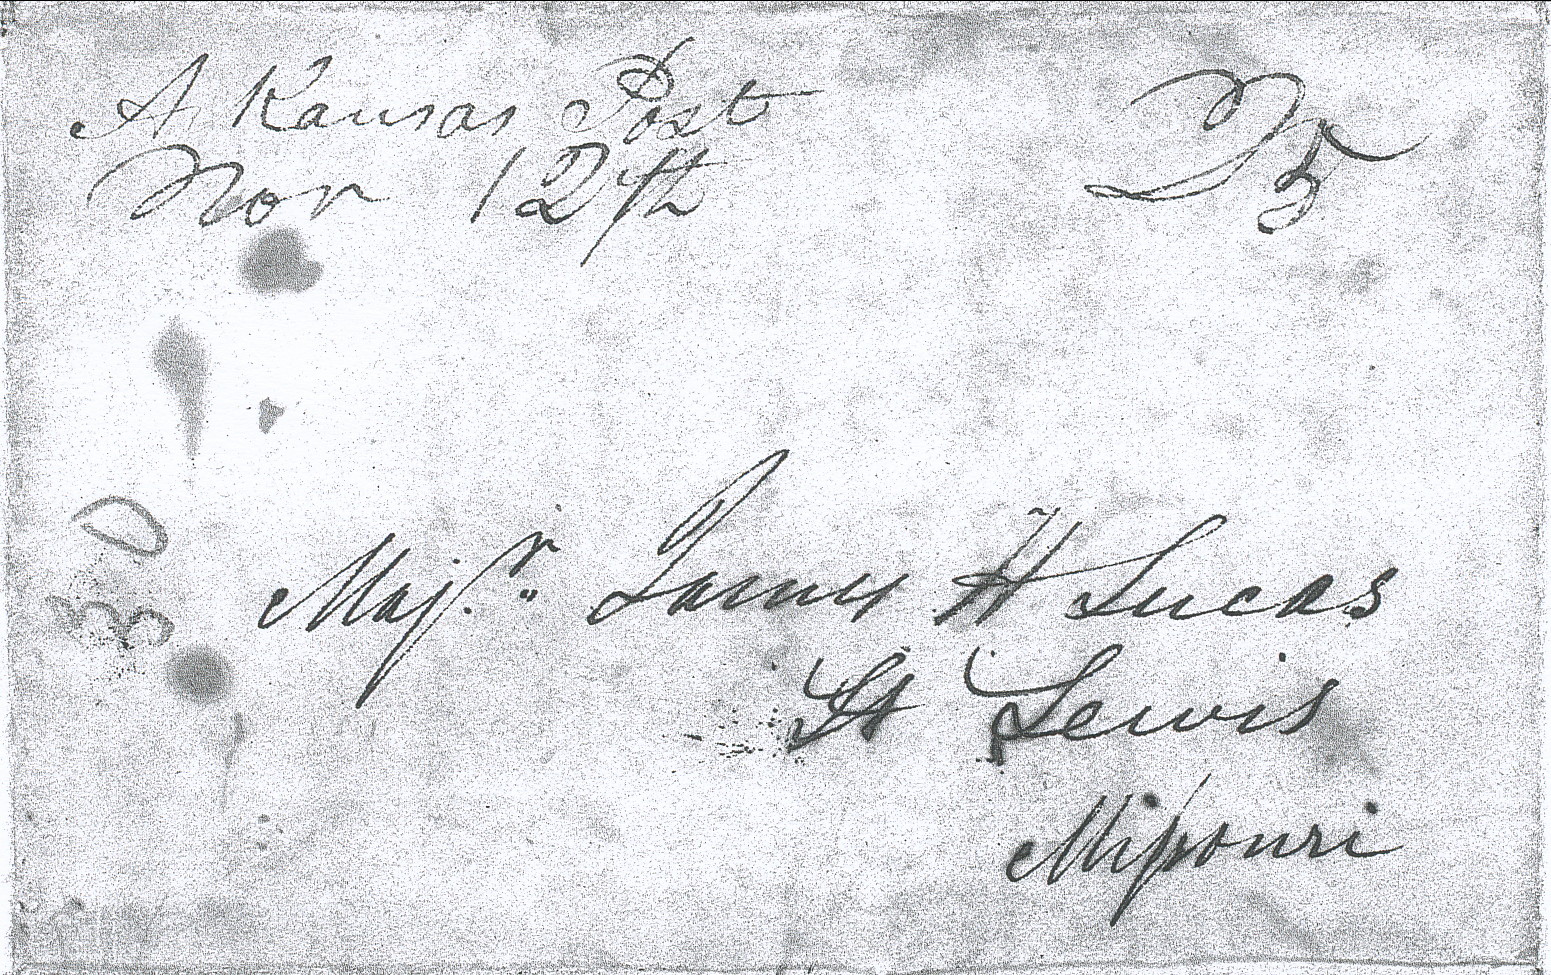 Arkansas Post
Nov 12th
25
Majr. James H Lucas
St Lewis
Missouri